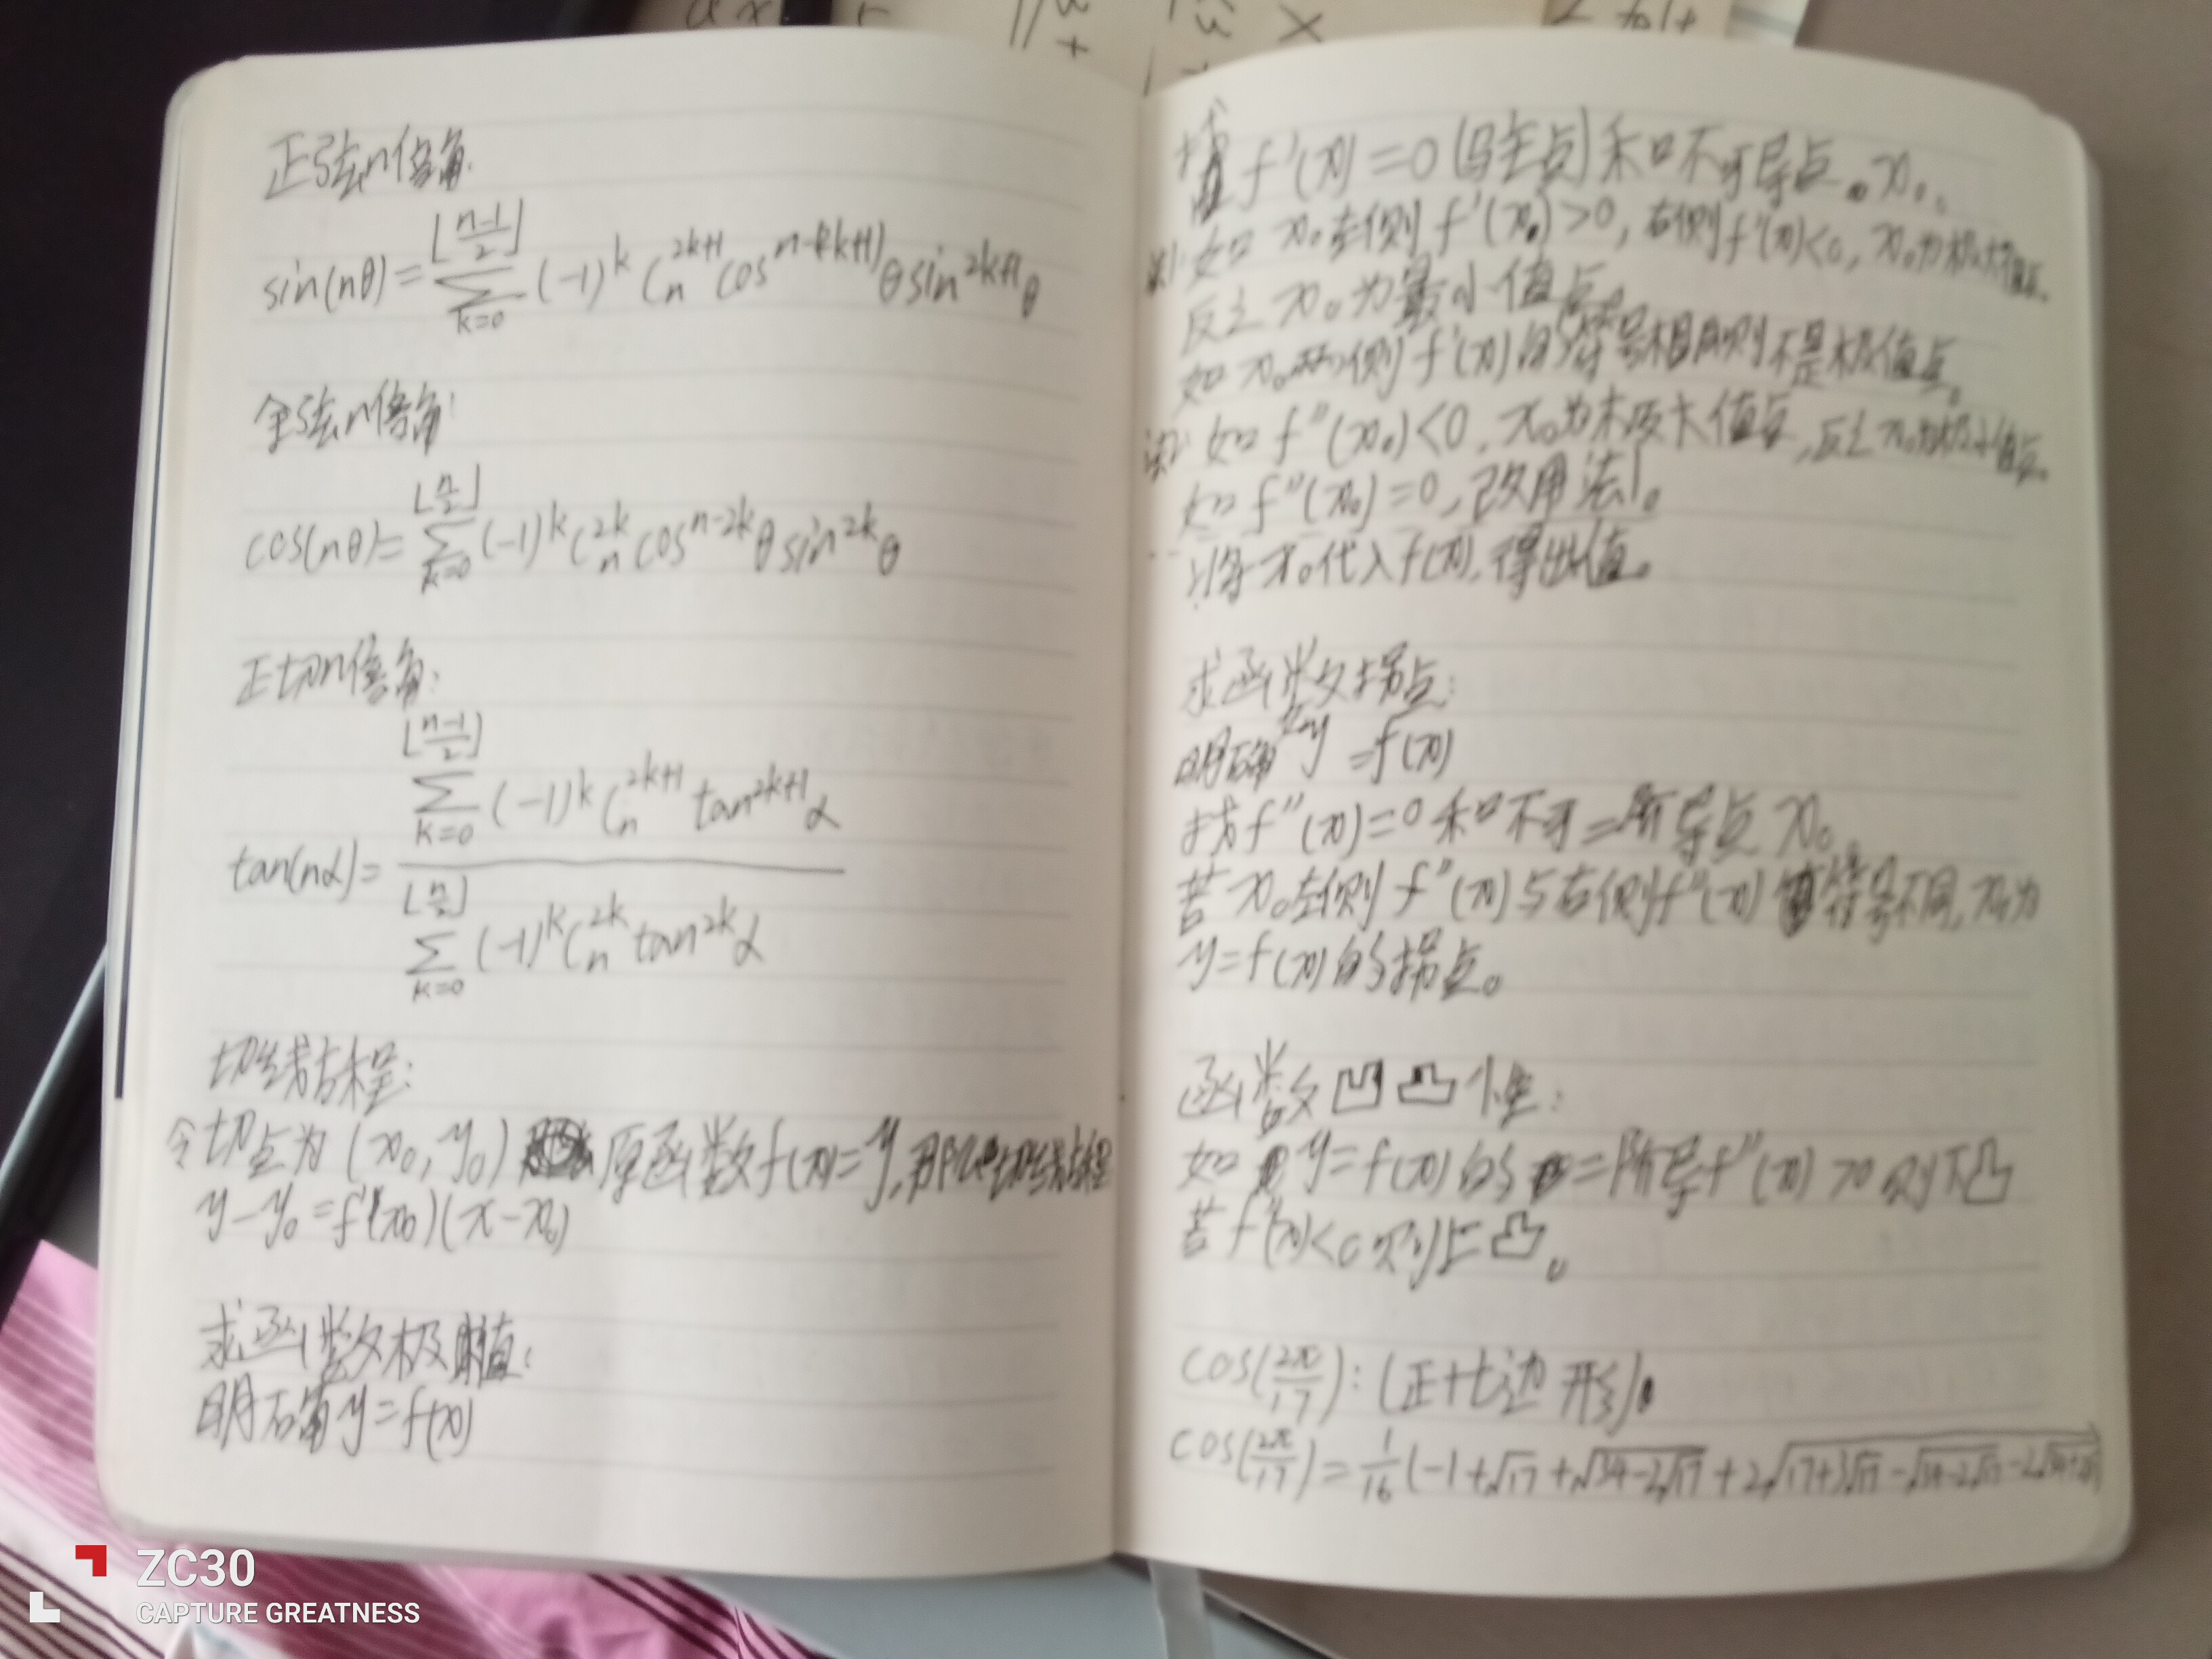 正弦n倍角:
sin(nθ)=∑_{k=0}^{⌊(n-1)/2⌋}(-1)^k C_n^{2k+1} cos^{n-(2k+1)}θ sin^{2k+1}θ
余弦n倍角:
cos(nθ)=∑_{k=0}^{⌊n/2⌋}(-1)^k C_n^{2k} cos^{n-2k}θ sin^{2k}θ
正切n倍角:
tan(nα)=\frac{∑_{k=0}^{⌊(n-1)/2⌋}(-1)^k C_n^{2k+1} tan^{2k+1}α}{∑_{k=0}^{⌊n/2⌋}(-1)^k C_n^{2k} tan^{2k}α}
切线方程:
令切点为(x₀,y₀) 原函数f(x)=y,
y-y₀=f'(x₀)(x-x₀)
求函数极值:
明确y=f(x)
找f'(x)=0(驻点)和不可导点。x₀。
法1:如x₀左侧f'(x₀)>0,右侧f'(x)<0,x₀为极大值点。
反之x₀为最小值点。
如x₀两侧f'(x)的符号相同则不是极值点。
法2:如f''(x₀)<0,x₀为极大值点,反之x₀为极小值点。
如f''(x₀)=0,改用法1。
将x₀代入f(x),得出值。
求函数拐点:
明确y=f(x)
找f''(x)=0和不可二阶导点x₀
若x₀左侧f''(x)与右侧f''(x)符号不同,x₀为
y=f(x)的拐点。
函数凹凸性:
如y=f(x)的二阶导f''(x)>0则下凸
若f''(x)<0则上凸。
cos(2π/17):(正十七边形)。
cos(2π/17)=1/16(-1+√17+√(34-2√17)+2√(17+3√17-√(34-2√17)-2√(34+2√17)
ZC30
CAPTURE GREATNESS